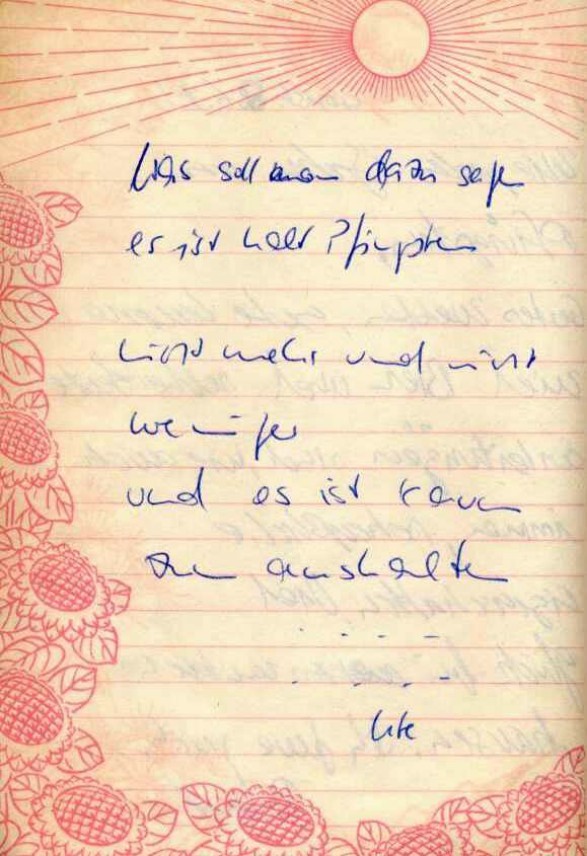 Was soll man dazu sagen
es ist halt Pfingsten
nicht mehr und nicht
weniger
und es ist kaum
zu aushalten
. . - . -
. . . . -
Ute